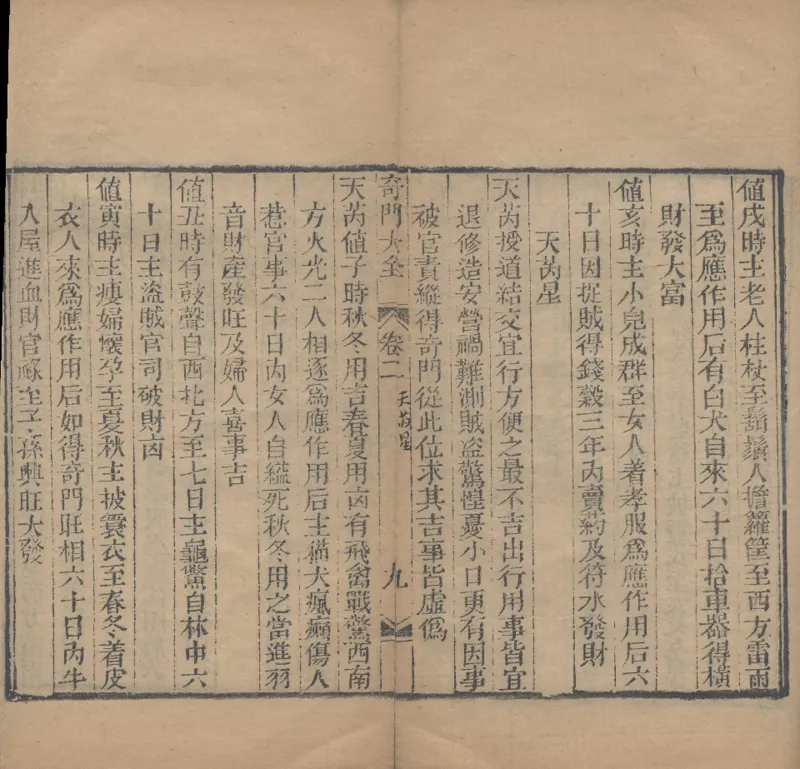 值戌時主老人柱杖至鬍鬚人擔籮筐至西方雷雨
至爲應作用后有白犬自來六十日拾車器得橫
財發大富
值亥時主小兒成群至女人着孝服爲應作用后六
十日因捉賊得錢穀三年內賣葯及符水發財
天芮星
天芮授道結交宜行方便之最不吉出行用事皆宜
退修造安營禍難測賊盗驚惶憂小口更有因事
被官責縱得奇門從此位求其吉事皆虛僞
奇門大全 卷二 天芮星 九
天芮值子時秋冬用吉春夏用凶有飛禽戰驚西南
方火光二人相逐爲應作用后主猫犬瘋癲傷人
惹官事六十日內女人自縊死秋冬用之當進羽
音財產發旺及婦人喜事吉
值丑時有鼓聲自西北方至七日主龜鱉自林中六
十日主盜賊官司破財凶
值寅時主瘦婦懷孕至夏秋主披簑衣至春冬着皮
衣人來爲應作用后如得奇門旺相六十日內牛
入屋進血財官祿至子孫興旺大發